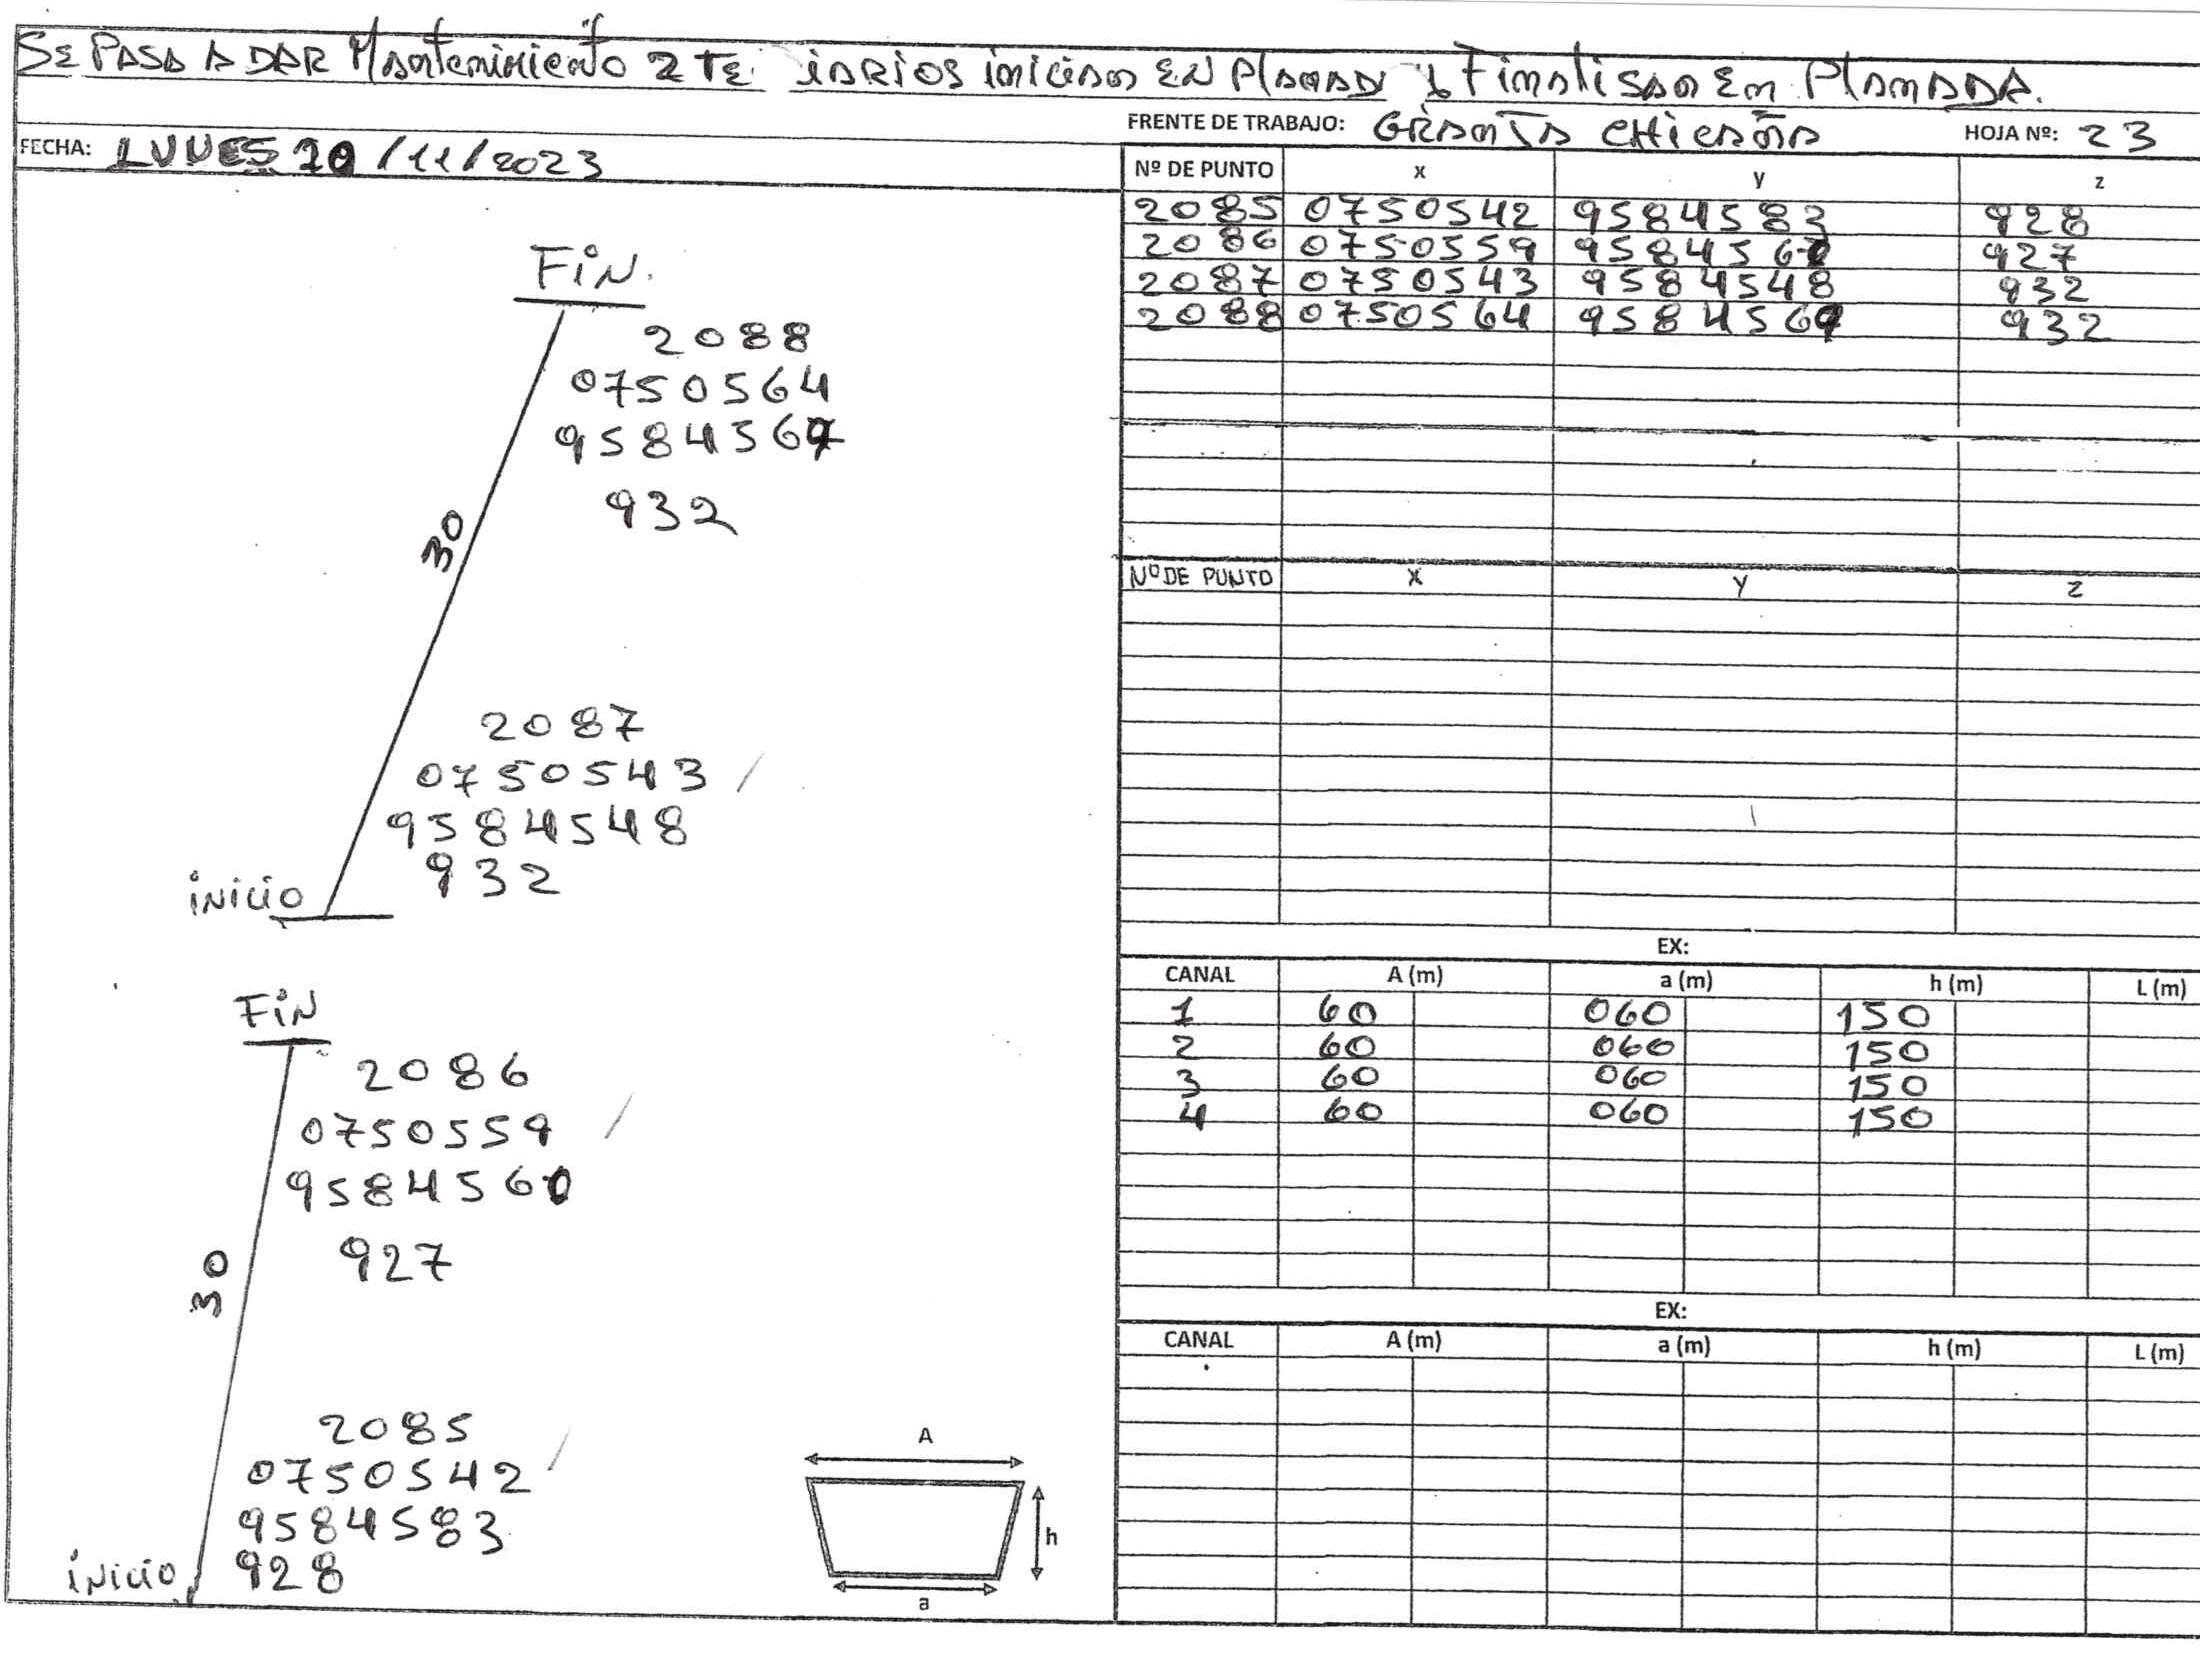 SE PASA A DAR Mantenimiento 2 TE iARIOS iniciAn EN PlAnAD y FinAlisAn En PlAnADA.
FRENTE DE TRABAJO: GRAnJA CHicAñA HOJA Nº: 23
FECHA: LUNES 20/11/2023
Nº DE PUNTO x y z
2085 0750542 9584583 928
2086 0750559 9584560 927
2087 0750543 9584548 932
2088 0750564 9584569 932
Nº DE PUNTO X Y Z
EX:
CANAL A (m) a (m) h (m) L (m)
1 60 060 150
2 60 060 150
3 60 060 150
4 60 060 150
EX:
CANAL A (m) a (m) h (m) L (m)
FiN.
2088
0750564
9584567
932
30
2087
0750543
9584548
932
iNicio
FiN
2086
0750559
9584560
927
30
2085
0750542
9584583
928
iNicio
A
h
a